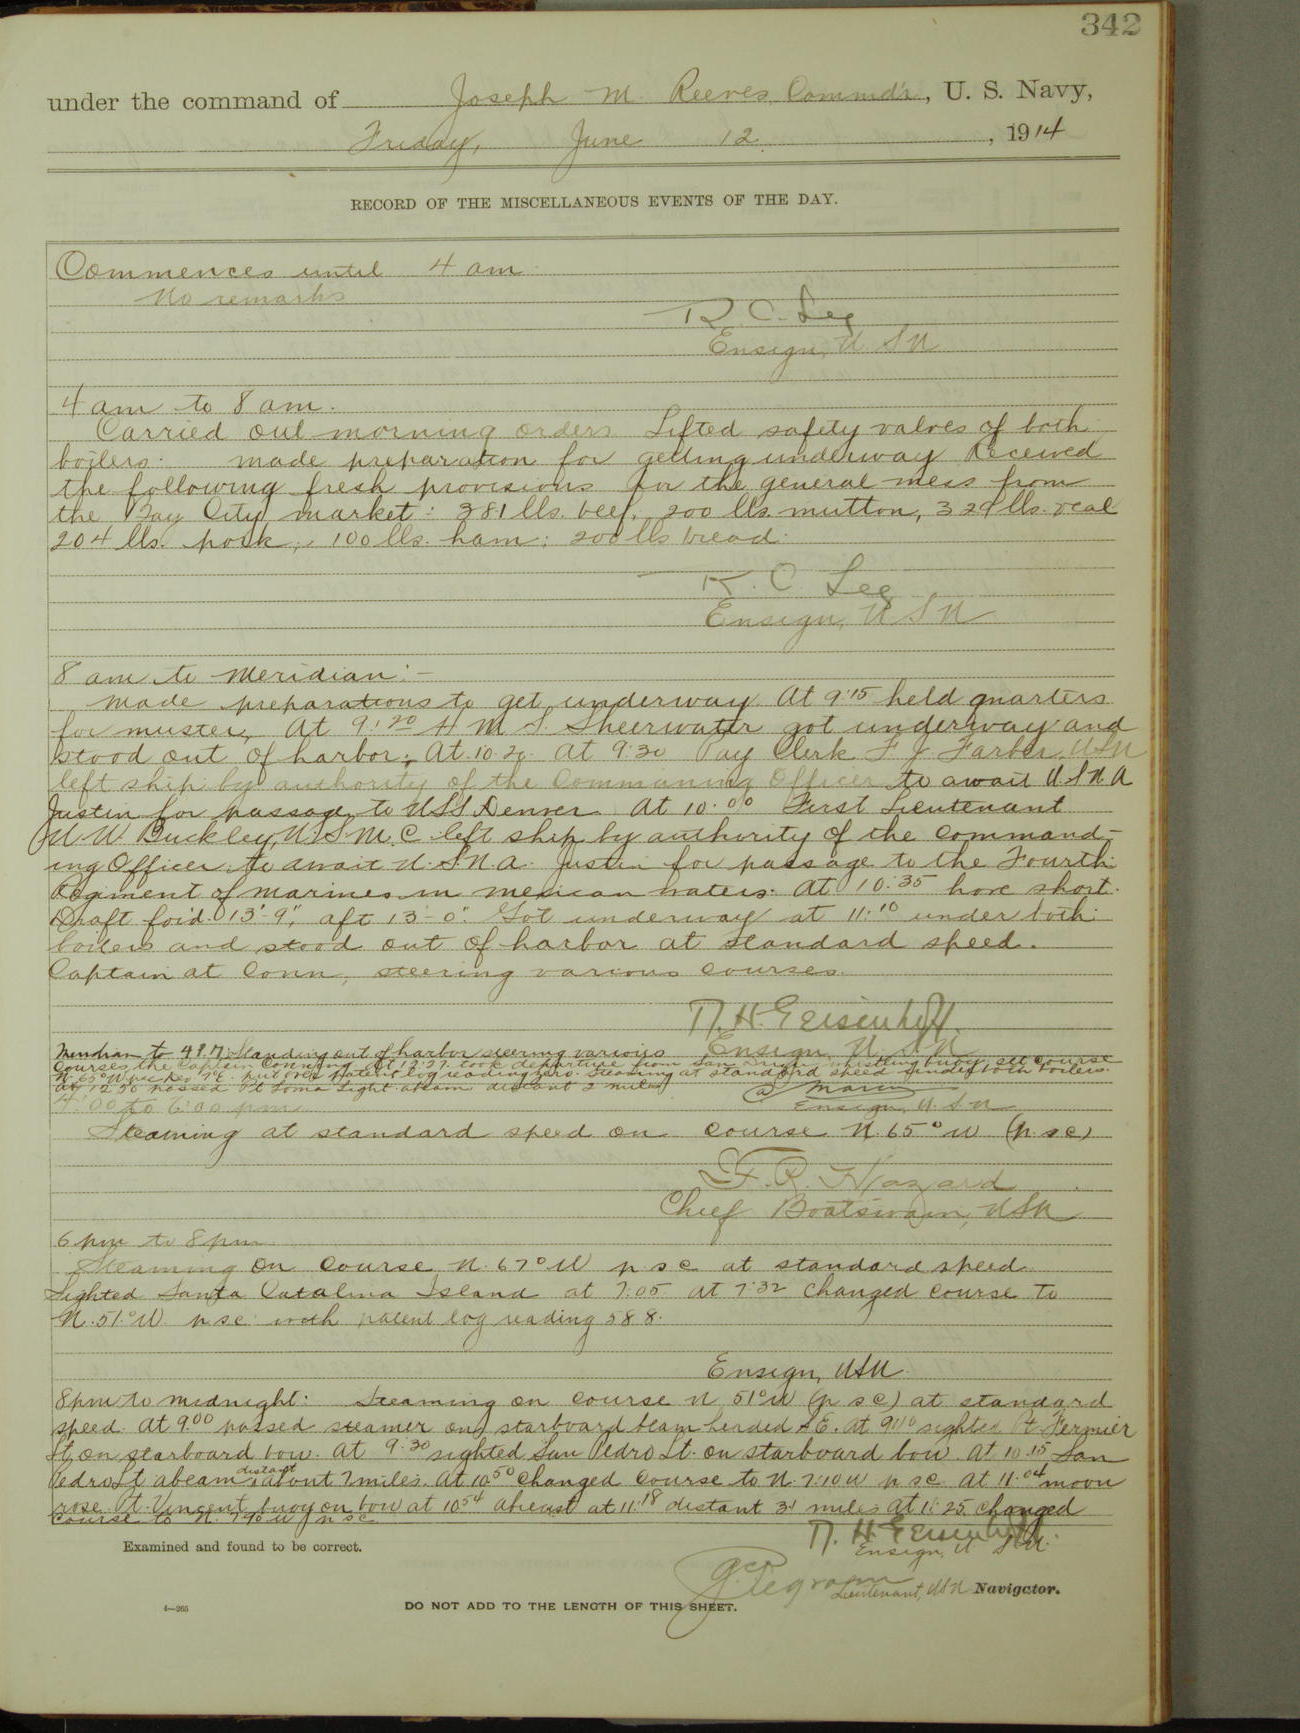 342
under the command of Joseph M. Reeves, Commd'r, U. S. Navy,
Friday, June 12, 1914
RECORD OF THE MISCELLANEOUS EVENTS OF THE DAY.
Commences until 4 am
No remarks
R. C. Lee
Ensign, U.S.N.
4 am to 8 am.
Carried out morning orders Lifted safety valves of both
boilers. Made preparation for getting underway Received
the following fresh provisions for the general mess from
the Bay City market: 381 lbs. beef, 200 lbs. mutton, 329 lbs. veal
204 lbs. pork, 100 lbs. ham; 200 lbs bread.
R. C. Lee
Ensign, U.S.N.
8 am to Meridian:-
Made preparations to get underway. At 9:15 held quarters
for muster. At 9:20 H M S. Sheerwater got underway and
stood out of harbor; At 10.20. At 9:30 Pay Clerk F J Farber, USN
left ship by authority of the Commaning Officer to await U.S.N.A
Justin for passage to USS Denver At 10:00 First Lieutenant
W. W. Buckley, U.S.M.C. left ship by authority of the Command-
ing Officer to await U.S.N.A. Justin for passage to the Fourth
Regiment of Marines in Mexican waters. At 10:35 hove short.
Draft for'd 13'-9", aft 13'-0". Got underway at 11:10 under both
boilers and stood out of harbor at standard speed.
Captain at Conn, steering various courses.
Ensign, U.S.N.
Meridian to 4 P.M. Standing out of harbor steering various
courses the Captain Conning. At 12:27 took departure from San Diego whistling buoy, set course
N. 65° W put over Patent log reading zero. Steaming at standard speed under both boilers.
At 12:30 passed Pt Loma Light abeam distant 2 miles
Ensign, U.S.N
4:00 to 6:00 pm
Steaming at standard speed on course N. 65° W (p s c)
F. R. Hazard
Chief Boatswain, USN
6 pm to 8 pm
Steaming on course N. 67° W p s c at standard speed.
Sighted Santa Catalina Island at 7:05 at 7:32 changed course to
N. 51° W p s c with patent log reading 58.8.
Ensign, USN
8 pm to midnight: Steaming on course N 51° W (p s c) at standard
speed. At 9:00 passed steamer on starboard beam headed S E. At 9:10 sighted Pt. Fermier
Lt on starboard bow. At 9:30 sighted San Pedro Lt. on starboard bow. At 10:15 San
Pedro Lt abeam distant about 7 miles. At 10:50 changed course to N. W p s c At 11:04 moon
rose Pt. Vincent buoy on bow at 10:54 abeam at 11:18 distant 3 miles At 11:25 changed
course to N. W p s c
Ensign, U S N.
Examined and found to be correct.
Lieutenant, USN Navigator.
4—265
DO NOT ADD TO THE LENGTH OF THIS SHEET.